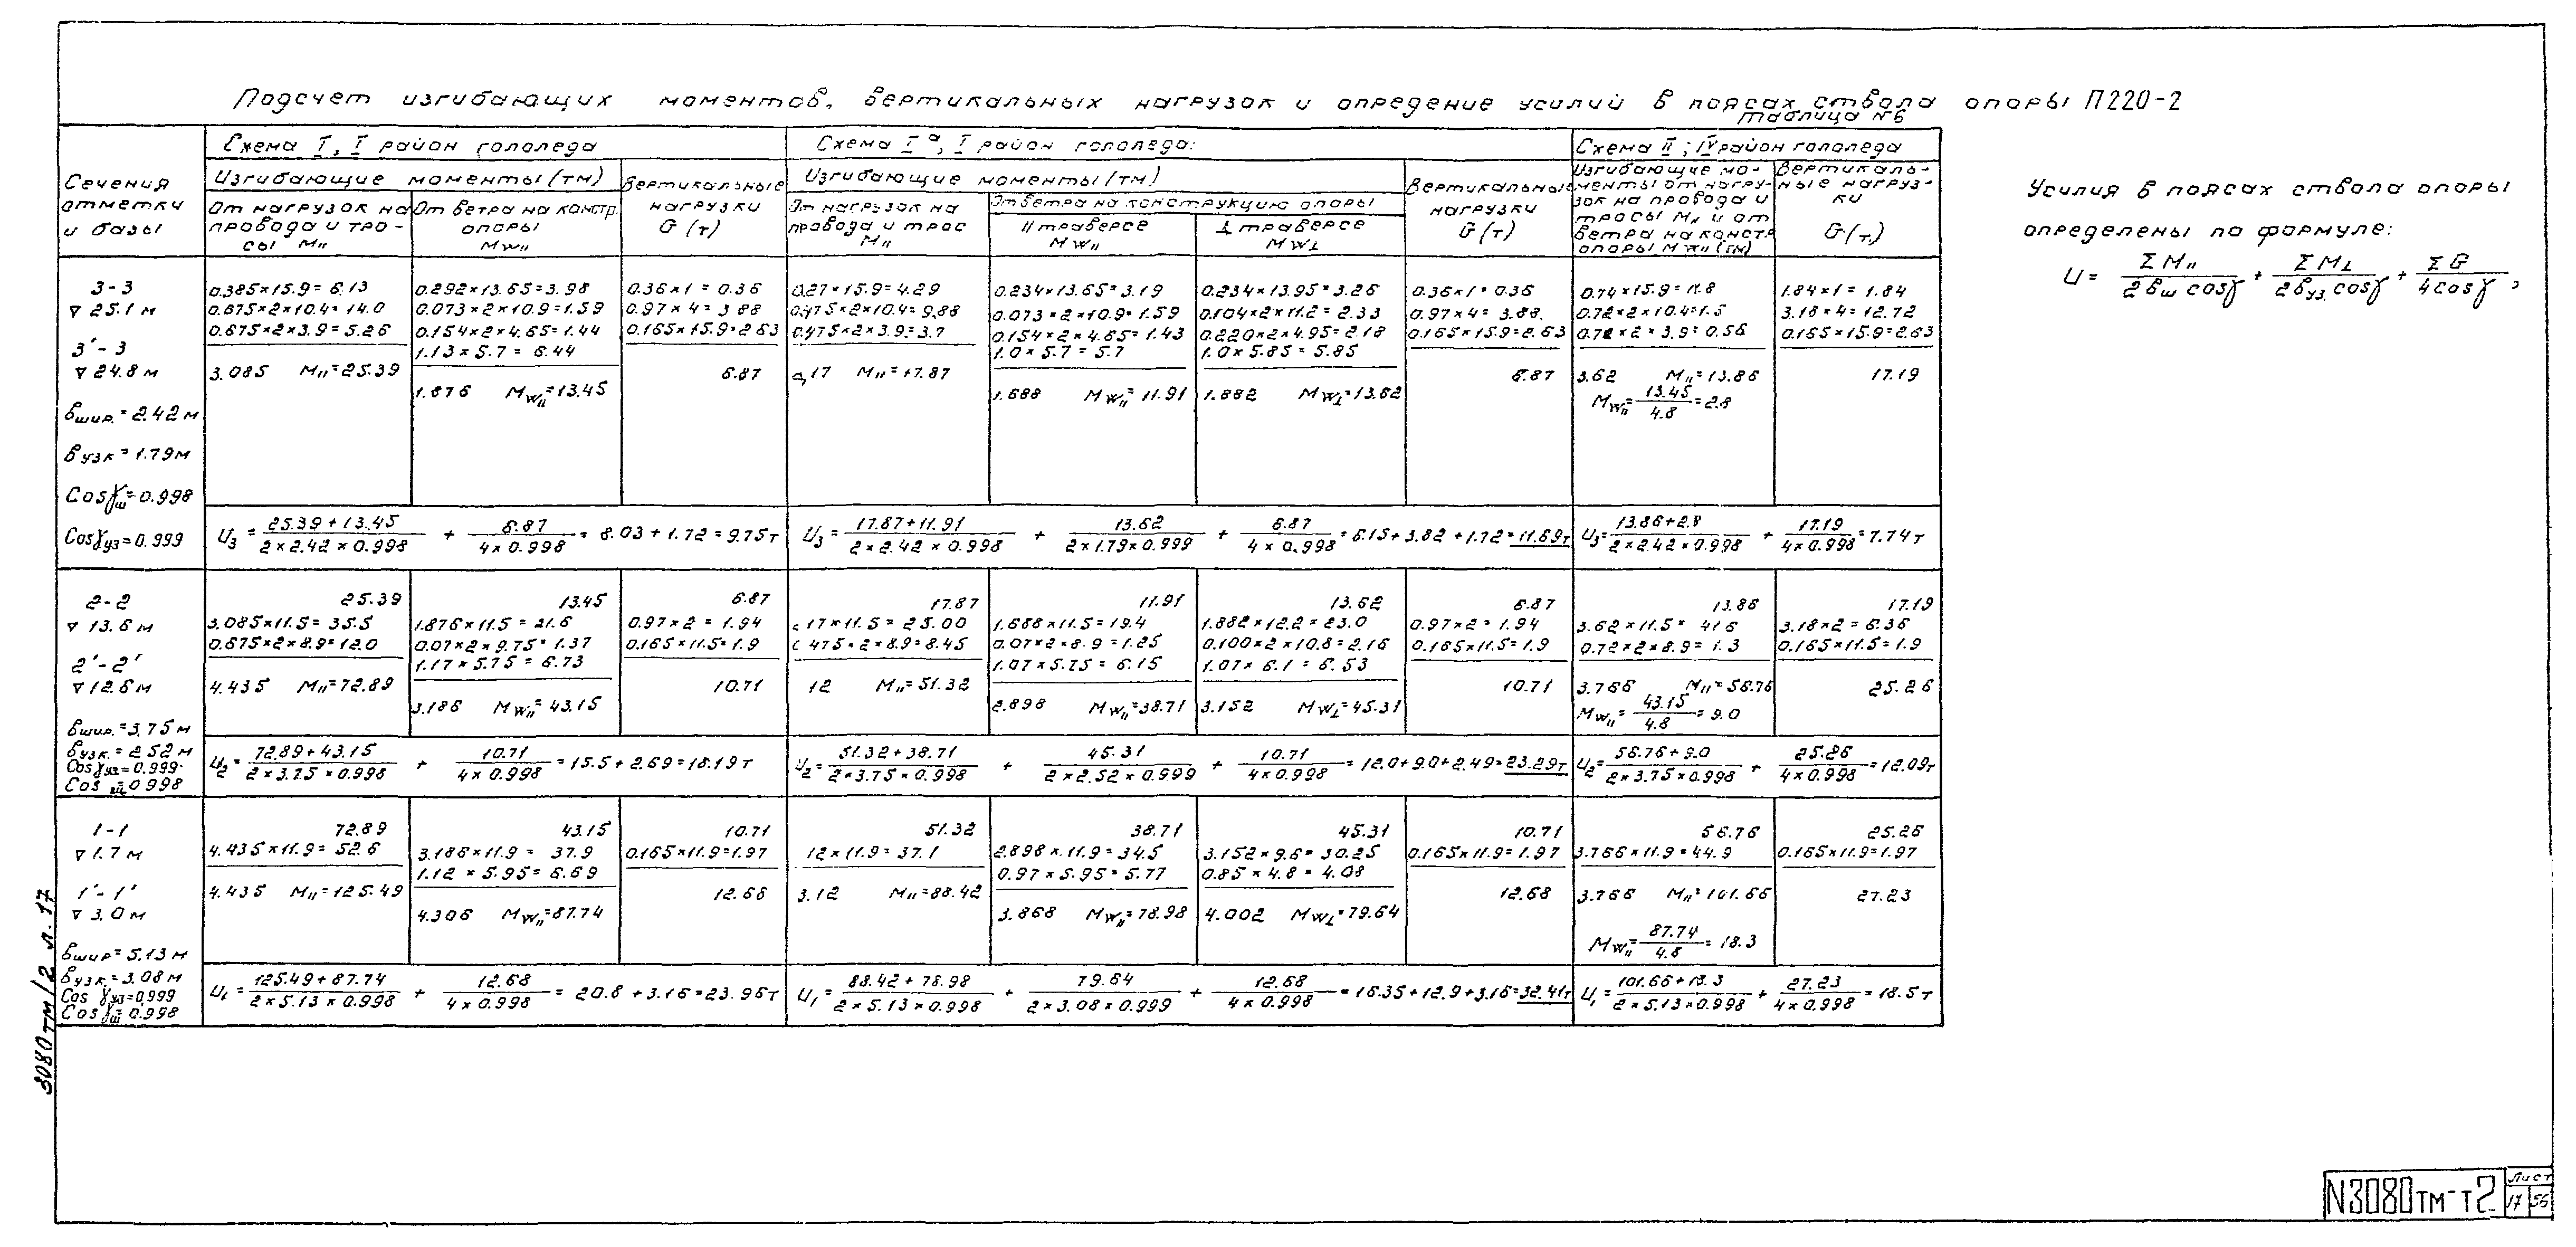 Подсчет изгибающих моментов, вертикальных нагрузок и опредение усилий в поясах ствола опоры П220-2
таблица №6
Сечения отметки и базы
Схема I, I район гололеда
Изгибающие моменты (тм)
От нагрузок на провода и тросы M∥
От ветра на констр. опоры MW∥
Вертикальные нагрузки G (т)
Схема Iа, I район гололеда:
Изгибающие моменты (тм)
От нагрузок на провода и трос M∥
От ветра на конструкцию опоры
∥ траверсе MW∥
⊥ траверсе MW⊥
Вертикальные нагрузки G (т)
Схема II; IV район гололеда
Изгибающие моменты от нагрузок на провода и тросы M∥ и от ветра на констр. опоры MW∥ (тм)
Вертикальные нагрузки G (т)
3-3
∇ 25.1 м
3'-3
∇ 24.8 м
вшир. = 2.42 м
вузк = 1.79 м
Cosγш = 0.998
Cosγуз = 0.999
0.385×15.9 = 6.13
0.675×2×10.4 = 14.0
0.675×2×3.9 = 5.26
3.085 M∥ = 25.39
0.292×13.65 = 3.98
0.073×2×10.9 = 1.59
0.154×2×4.65 = 1.44
1.13×5.7 = 6.44
1.876 MW∥ = 13.45
0.36×1 = 0.36
0.97×4 = 3.88
0.165×15.9 = 2.63
6.87
0.27×15.9 = 4.29
0.475×2×10.4 = 9.88
0.475×2×3.9 = 3.7
,17 M∥ = 17.87
0.234×13.65 = 3.19
0.073×2×10.9 = 1.59
0.154×2×4.65 = 1.43
1.0×5.7 = 5.7
1.688 MW∥ = 11.91
0.234×13.95 = 3.26
0.104×2×11.2 = 2.33
0.220×2×4.95 = 2.18
1.0×5.85 = 5.85
1.882 MW⊥ = 13.62
0.36×1 = 0.36
0.97×4 = 3.88.
0.165×15.9 = 2.63
6.87
0.74×15.9 = 11.8
0.72×2×10.4 = 1.5
0.72×2×3.9 = 0.56
3.62 M∥ = 13.86
MW∥ = 13.45/4.8 = 2.8
1.84×1 = 1.84
3.18×4 = 12.72
0.165×15.9 = 2.63
17.19
U3 = (25.39+13.45)/(2×2.42×0.998) + 6.87/(4×0.998) = 8.03+1.72 = 9.75т
U3 = (17.87+11.91)/(2×2.42×0.998) + 13.62/(2×1.79×0.999) + 6.87/(4×0.998) = 6.15+3.82+1.72 = 11.69т
U3 = (13.86+2.8)/(2×2.42×0.998) + 17.19/(4×0.998) = 7.74т
2-2
∇ 13.6 м
2'-2'
∇ 12.6 м
вшир. = 3.75 м
вузк. = 2.52 м
Cosγуз = 0.999
Cos ш = 0.998
25.39
3.085×11.5 = 35.5
0.675×2×8.9 = 12.0
4.435 M∥ = 72.89
13.45
1.876×11.5 = 21.6
0.07×2×9.75 = 1.37
1.17×5.75 = 6.73
3.186 MW∥ = 43.15
6.87
0.97×2 = 1.94
0.165×11.5 = 1.9
10.71
17.87
17×11.5 = 25.00
475×2×8.9 = 8.45
12 M∥ = 51.32
11.91
1.688×11.5 = 19.4
0.07×2×8.9 = 1.25
1.07×5.75 = 6.15
2.898 MW∥ = 38.71
13.62
1.882×12.2 = 23.0
0.100×2×10.8 = 2.16
1.07×6.1 = 6.53
3.152 MW⊥ = 45.31
6.87
0.97×2 = 1.94
0.165×11.5 = 1.9
10.71
13.86
3.62×11.5 = 41.6
0.72×2×8.9 = 1.3
3.766 M∥ = 56.76
MW∥ = 43.15/4.8 = 9.0
17.19
3.18×2 = 6.36
0.165×11.5 = 1.9
25.26
U2 = (72.89+43.15)/(2×3.75×0.998) + 10.71/(4×0.998) = 15.5+2.69 = 18.19т
U2 = (51.32+38.71)/(2×3.75×0.998) + 45.31/(2×2.52×0.999) + 10.71/(4×0.998) = 12.0+9.0+2.49 = 23.29т
U2 = (56.76+9.0)/(2×3.75×0.998) + 25.26/(4×0.998) = 12.09т
1-1
∇ 1.7 м
1'-1'
∇ 3.0 м
вшир = 5.13 м
вузк. = 3.08 м
Cos γуз = 0,999
Cosγш = 0.998
72.89
4.435×11.9 = 52.6
4.435 M∥ = 125.49
43.15
3.186×11.9 = 37.9
1.12×5.95 = 6.69
4.306 MW∥ = 87.74
10.71
0.165×11.9 = 1.97
12.68
51.32
12×11.9 = 37.1
3.12 M∥ = 88.42
38.71
2.898×11.9 = 34.5
0.97×5.95 = 5.77
3.868 MW∥ = 78.98
45.31
3.152×9.6 = 30.25
0.85×4.8 = 4.08
4.002 MW⊥ = 79.64
10.71
0.165×11.9 = 1.97
12.68
56.76
3.766×11.9 = 44.9
3.766 M∥ = 101.66
MW∥ = 87.74/4.8 = 18.3
25.26
0.165×11.9 = 1.97
27.23
U1 = (125.49+87.74)/(2×5.13×0.998) + 12.68/(4×0.998) = 20.8+3.16 = 23.96т
U1 = (88.42+78.98)/(2×5.13×0.998) + 79.64/(2×3.08×0.999) + 12.68/(4×0.998) = 16.35+12.9+3.16 = 32.41т
U1 = (101.66+18.3)/(2×5.13×0.998) + 27.23/(4×0.998) = 18.5т
Усилия в поясах ствола опоры
определены по формуле:
U = ΣM∥/(2вш cosγ) + ΣM⊥/(2вуз. cosγ) + ΣG/(4cosγ),
3080тм/2 л.17
N3080тм-т2
Лист
17 56